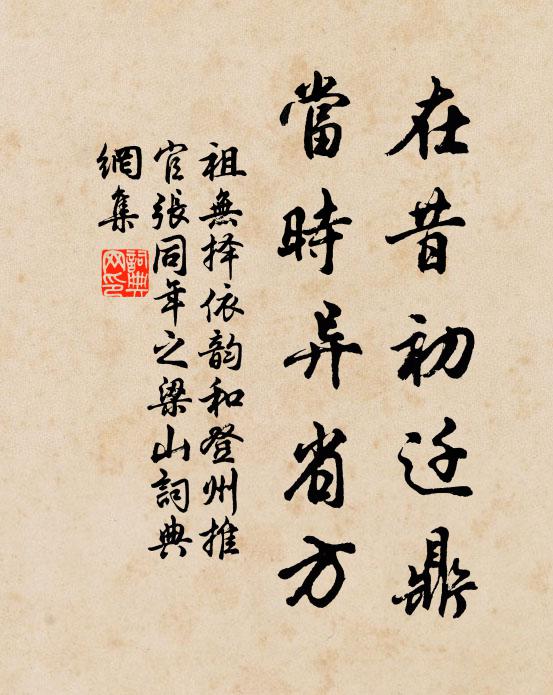 在昔初迁鼎
當時异省方
祖無择依韵和登州推
官張同年之梁山詞典
網集
詞典網印